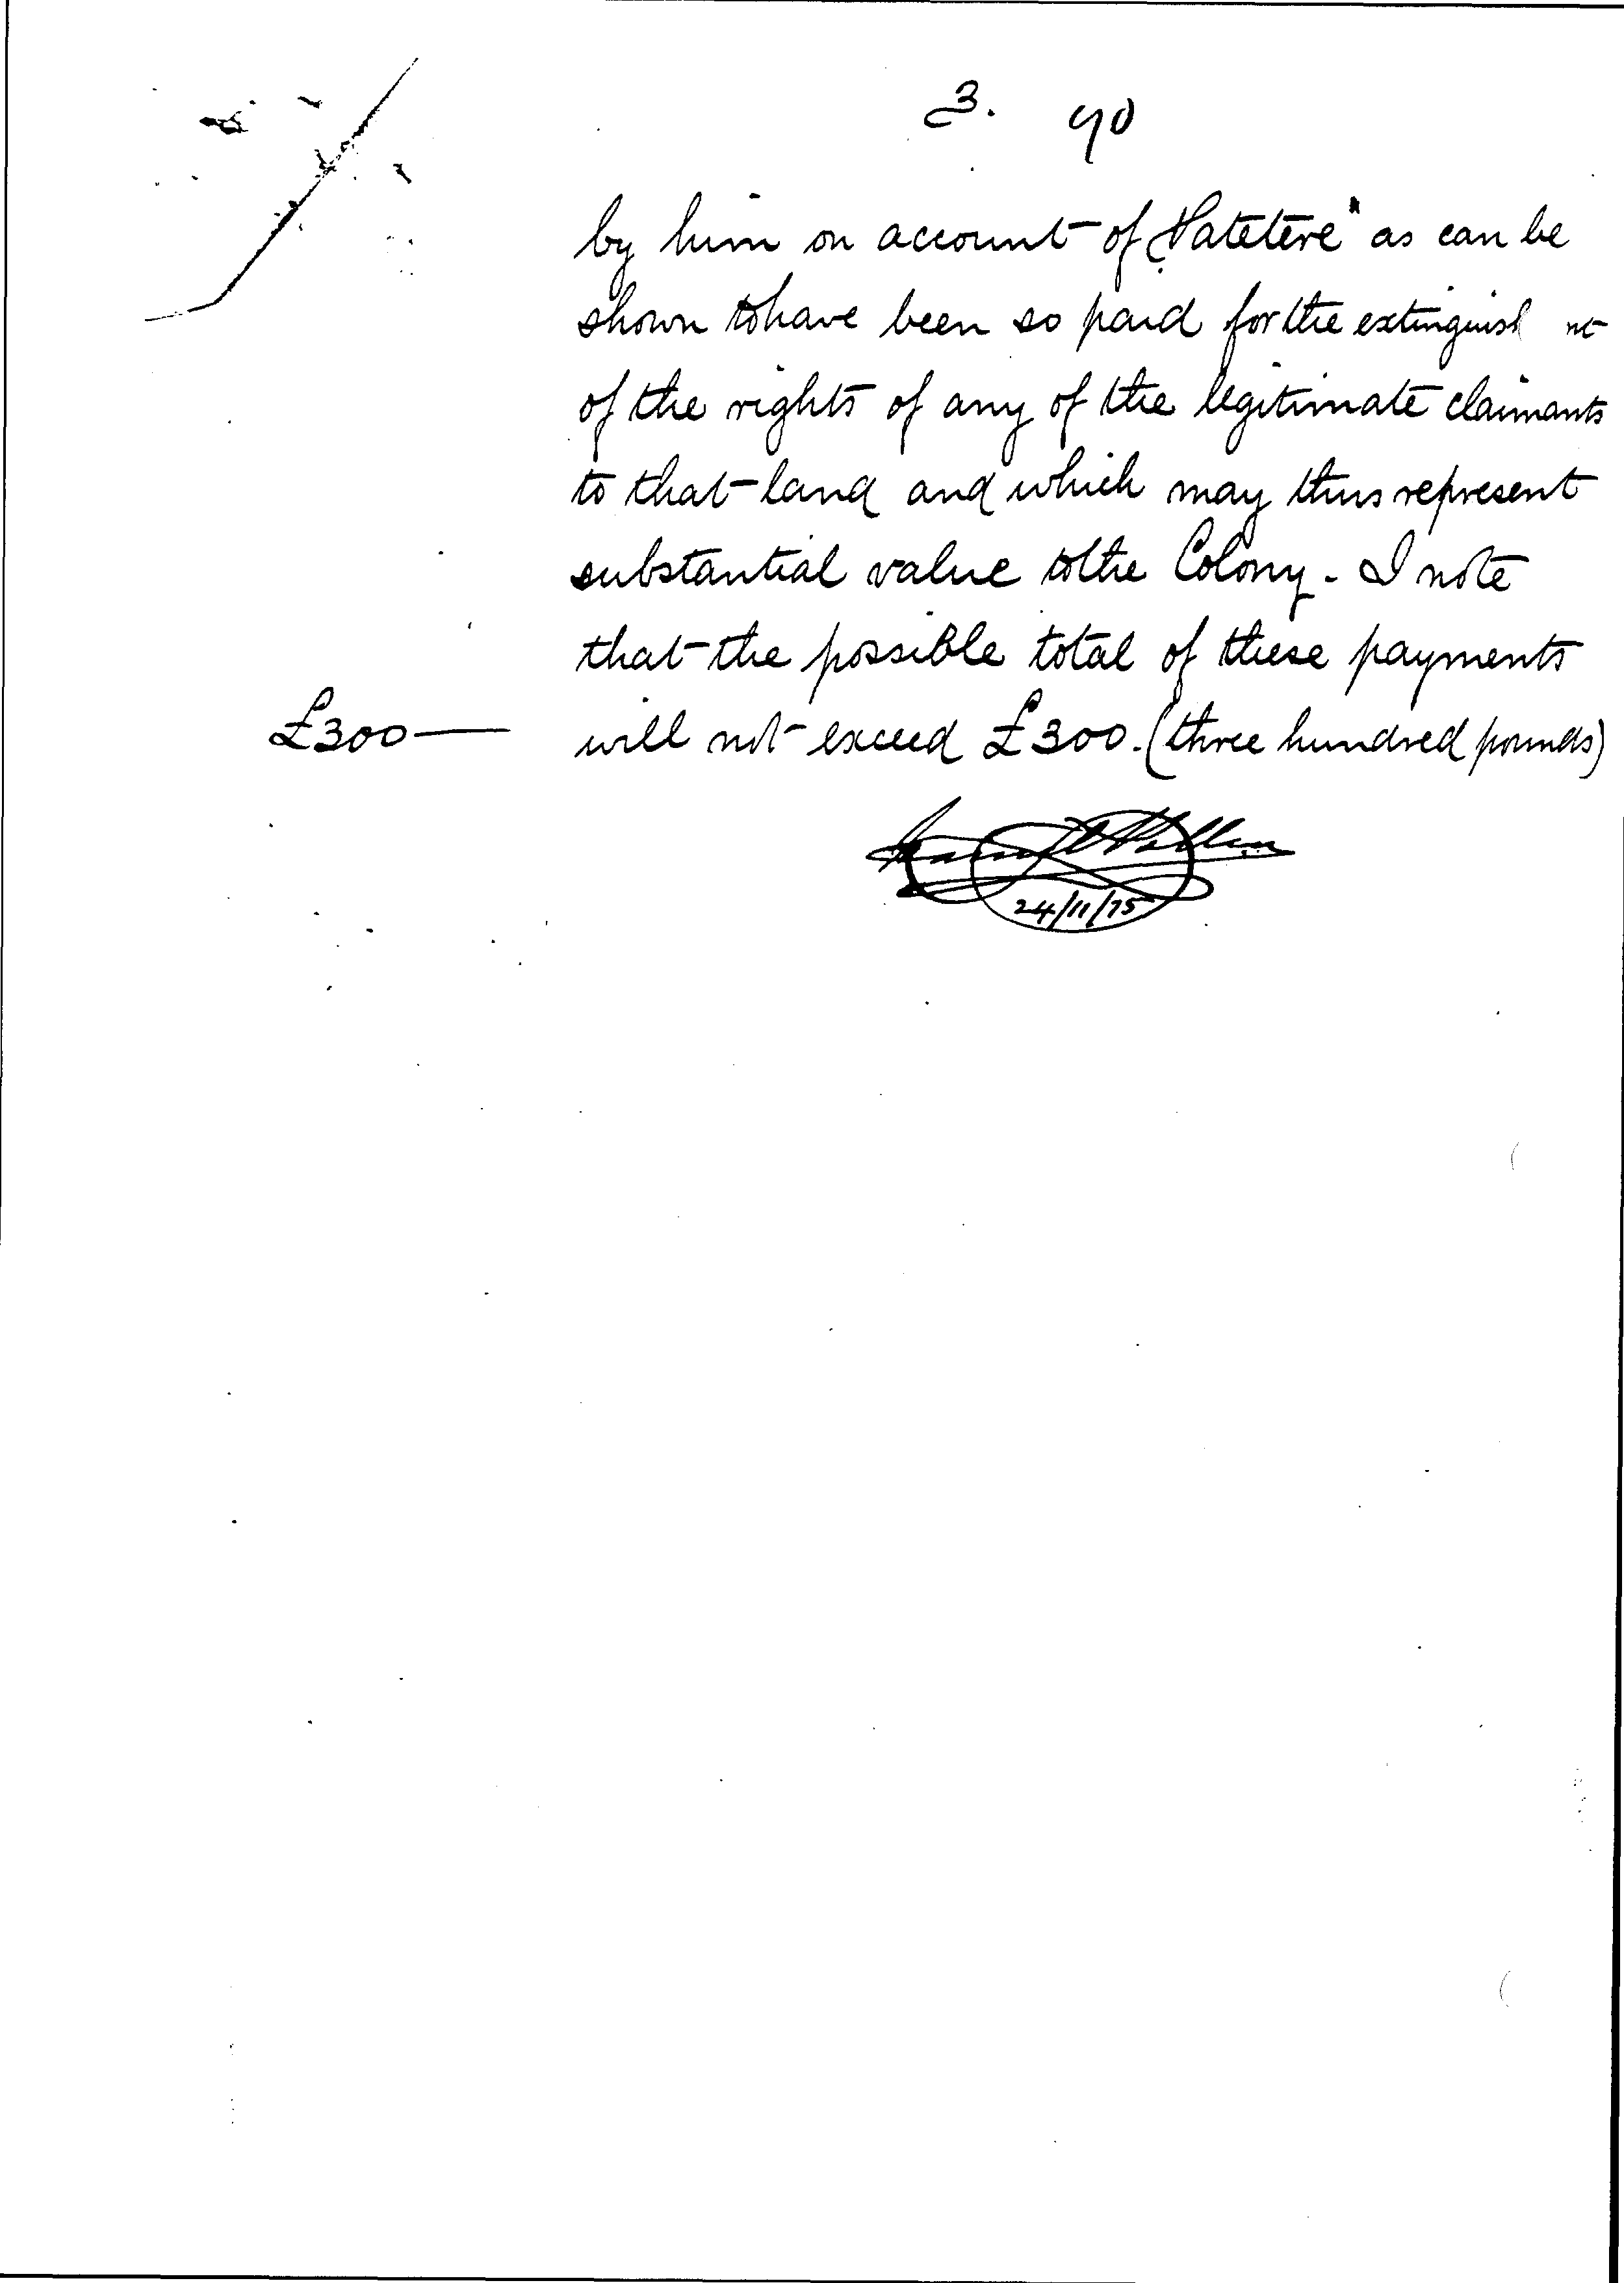 3. 90
by him on account of "Patetere" as can be
shown to have been so paid for the extinguish nt
of the rights of any of the legitimate claimants
to that land and which may thus represent
substantial value to the Colony - I note
that the possible total of these payments
£300— will not exceed £300. (three hundred pounds)
24/11/75